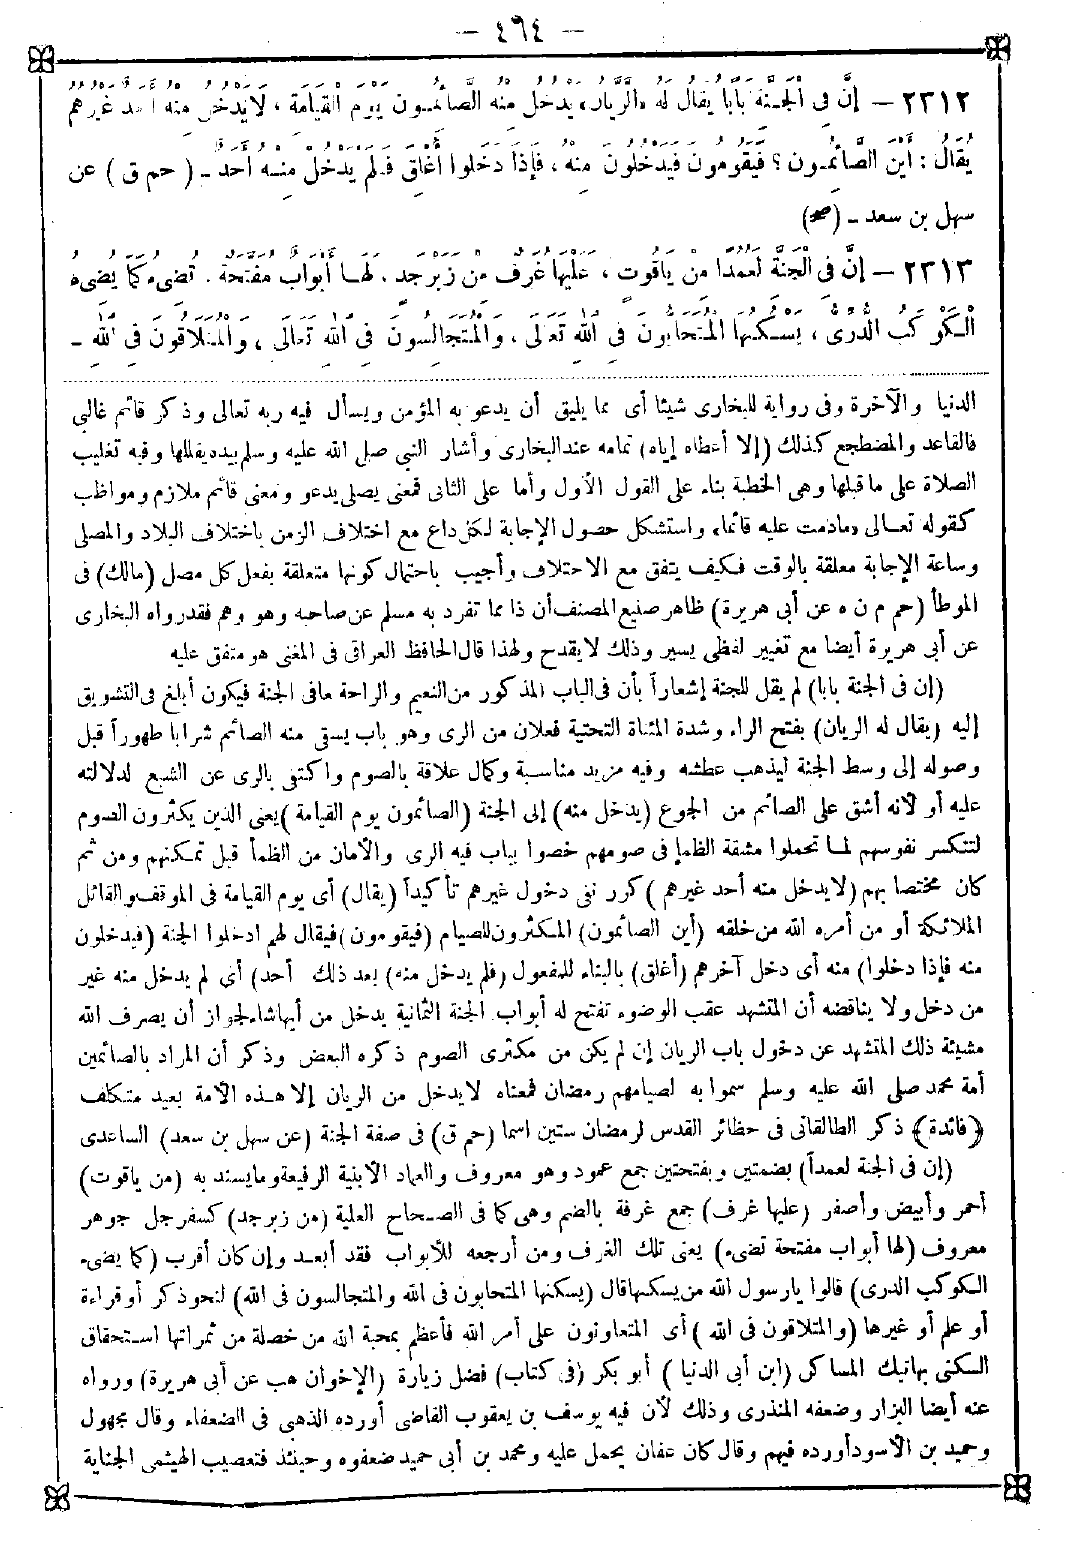 — ٤٦٤ —
٢٣١٢ — إِنَّ فِى الْجَنَّةِ بَابًا يُقَالُ لَهُ «الرَّيَّانُ» يَدْخُلُ مِنْهُ الصَّائِمُونَ يَوْمَ الْقِيَامَةِ ، لَا يَدْخُلُ مِنْهُ أَحَدٌ غَيْرُهُمْ
يُقَالُ : أَيْنَ الصَّائِمُونَ ؟ فَيَقُومُونَ فَيَدْخُلُونَ مِنْهُ ، فَإِذَا دَخَلُوا أُغْلِقَ فَلَمْ يَدْخُلْ مِنْهُ أَحَدٌ - ( حم ق ) عن
سهل بن سعد - (صح)
٢٣١٣ — إِنَّ فِى الْجَنَّةِ لَعُمُدًا مِنْ يَاقُوتٍ ، عَلَيْهَا غُرَفٌ مِنْ زَبَرْجَدٍ . لَهَا أَبْوَابٌ مُفَتَّحَةٌ . تُضِىءُ كَمَا يُضِىءُ
الْكَوْكَبُ الدُّرِّىُّ ، يَسْكُنُهَا الْمُتَحَابُّونَ فِى اللهِ تَعَالَى ، وَالْمُتَجَالِسُونَ فِى اللهِ تَعَالَى ، وَالْمُتَلَاقُونَ فِى اللهِ -
الدنيا والآخرة وفى رواية للبخارى شيئا أى مما يليق أن يدعو به المؤمن ويسأل فيه ربه تعالى وذكر قائم غالبى
فالقاعد والمضطجع كذلك (إلا أعطاه إياه) تمامه عند البخارى وأشار النبى صلى الله عليه وسلم بيده يقللها وفيه تغليب
الصلاة على ما قبلها وهى الخطبة بناء على القول الأول وأما على الثانى فمعنى يصلى يدعو ومعنى قائم ملازم ومواظب
كقوله تعالى «مادمت عليه قائما» واستشكل حصول الإجابة لكل داع مع اختلاف الزمن باختلاف البلاد والمصلى
وساعة الإجابة معلقة بالوقت فكيف يتفق مع الاختلاف وأجيب باحتمال كونها متعلقة بفعل كل مصل (مالك) فى
الموطأ (حم م ن ه عن أبى هريرة) ظاهر صنيع المصنف أن ذا مما تفرد به مسلم عن صاحبه وهو وهم فقد رواه البخارى
عن أبى هريرة أيضا مع تغيير لفظى يسير وذلك لا يقدح ولهذا قال الحافظ العراقى فى المغنى هو متفق عليه
(إن فى الجنة بابا) لم يقل للجنة إشعاراً بأن فى الباب المذكور من النعيم والراحة ما فى الجنة فيكون أبلغ فى التشويق
إليه (يقال له الريان) بفتح الراء وشدة المثناة التحتية فعلان من الرى وهو باب يسقى منه الصائم شرابا طهوراً قبل
وصوله إلى وسط الجنة ليذهب عطشه وفيه مزيد مناسبة وكمال علاقة بالصوم واكتفى بالرى عن الشبع لدلالته
عليه أو لأنه أشق على الصائم من الجوع (يدخل منه) إلى الجنة (الصائمون يوم القيامة) يعنى الذين يكثرون الصوم
لتتكسر نفوسهم لما تحملوا مشقة الظمإ فى صومهم خصوا بباب فيه الرى والأمان من الظمأ قبل تمكنهم ومن ثم
كان مختصا بهم (لايدخل منه أحد غيرهم) كرر نفى دخول غيرهم تأكيداً (يقال) أى يوم القيامة فى الموقف والقائل
الملائكة أو من أمره الله من خلقه (أين الصائمون) المكثرون للصيام (فيقومون) فيقال لهم ادخلوا الجنة (فيدخلون
منه فإذا دخلوا) منه أى دخل آخرهم (أغلق) بالبناء للمفعول (فلم يدخل منه) بعد ذلك أحد) أى لم يدخل منه غير
من دخل ولا يناقضه أن المتشهد عقب الوضوء تفتح له أبواب الجنة الثمانية يدخل من أيها شاء لجواز أن يصرف الله
مشيئة ذلك المتشهد عن دخول باب الريان إن لم يكن من مكثرى الصوم ذكره البعض وذكر أن المراد بالصائمين
أمة محمد صلى الله عليه وسلم سموا به لصيامهم رمضان فمعناه لايدخل من الريان إلا هذه الأمة بعيد متكلف
﴿فائدة﴾ ذكر الطالقانى فى حظائر القدس لرمضان ستين اسما (حم ق) فى صفة الجنة (عن سهل بن سعد) الساعدى
(إن فى الجنة لعمداً) بضمتين وبفتحتين جمع عمود وهو معروف والعماد الأبنية الرفيعة وما يسند به (من ياقوت)
أحمر وأبيض وأصفر (عليها غرف) جمع غرفة بالضم وهى كما فى الصحاح العلية (من زبرجد) كسفرجل جوهر
معروف (لها أبواب مفتحة تضىء) يعنى تلك الغرف ومن أرجعه للأبواب فقد أبعد وإن كان أقرب (كما يضىء
الكوكب الدرى) قالوا يارسول الله من يسكنها قال (يسكنها المتحابون فى الله والمتجالسون فى الله) لنحو ذكر أو قراءة
أو علم أو غيرها (والمتلاقون فى الله) أى المتعاونون على أمر الله فأعظم بمحبة الله من خصلة من ثمراتها استحقاق
السكنى بهاتيك المساكن (ابن أبى الدنيا) أبو بكر (فى كتاب) فضل زيارة (الإخوان هب عن أبى هريرة) ورواه
عنه أيضا البزار وضعفه المنذرى وذلك لأن فيه يوسف بن يعقوب القاضى أورده الذهبى فى الضعفاء وقال مجهول
وحميد بن الأسود أورده فيهم وقال كان عفان يحمل عليه ومحمد بن أبى حميد ضعفوه وحينئذ فتعصيب الهيثمى الجناية